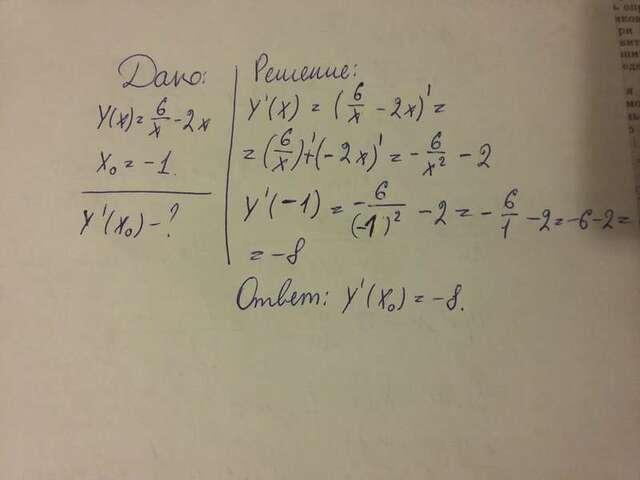 Дано:
y(x) = 6/x - 2x
x₀ = -1.
y'(x₀) - ?
Решение:
y'(x) = (6/x - 2x)' =
= (6/x)' + (-2x)' = -6/x² - 2
y'(-1) = -6/(-1)² - 2 = -6/1 - 2 = -6 - 2 =
= -8
Ответ: y'(x₀) = -8.